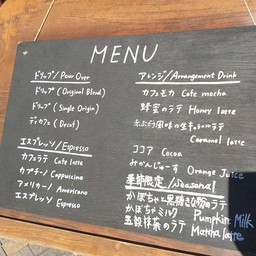 MENU
ドリップ/Pour Over
ドリップ(Original Blend)
ドリップ(Single Origin)
ディカフェ(Decaf)
エスプレッソ/Espresso
カフェラテ Cafe latte
カプチーノ Cappuccino
アメリカーノ Americano
エスプレッソ Espresso
アレンジ/Arrangement Drink
カフェモカ Cafe mocha
蜂蜜のラテ Honey latte
風味の生キャラメルラテ
Caramel latte
ココア Cocoa
みかんじゅーす Orange Juice
季節限定/Seasonal
かぼちゃと黒糖きな粉のラテ
かぼちゃミルク Pumpkin Milk
抹茶のラテ Matcha latte